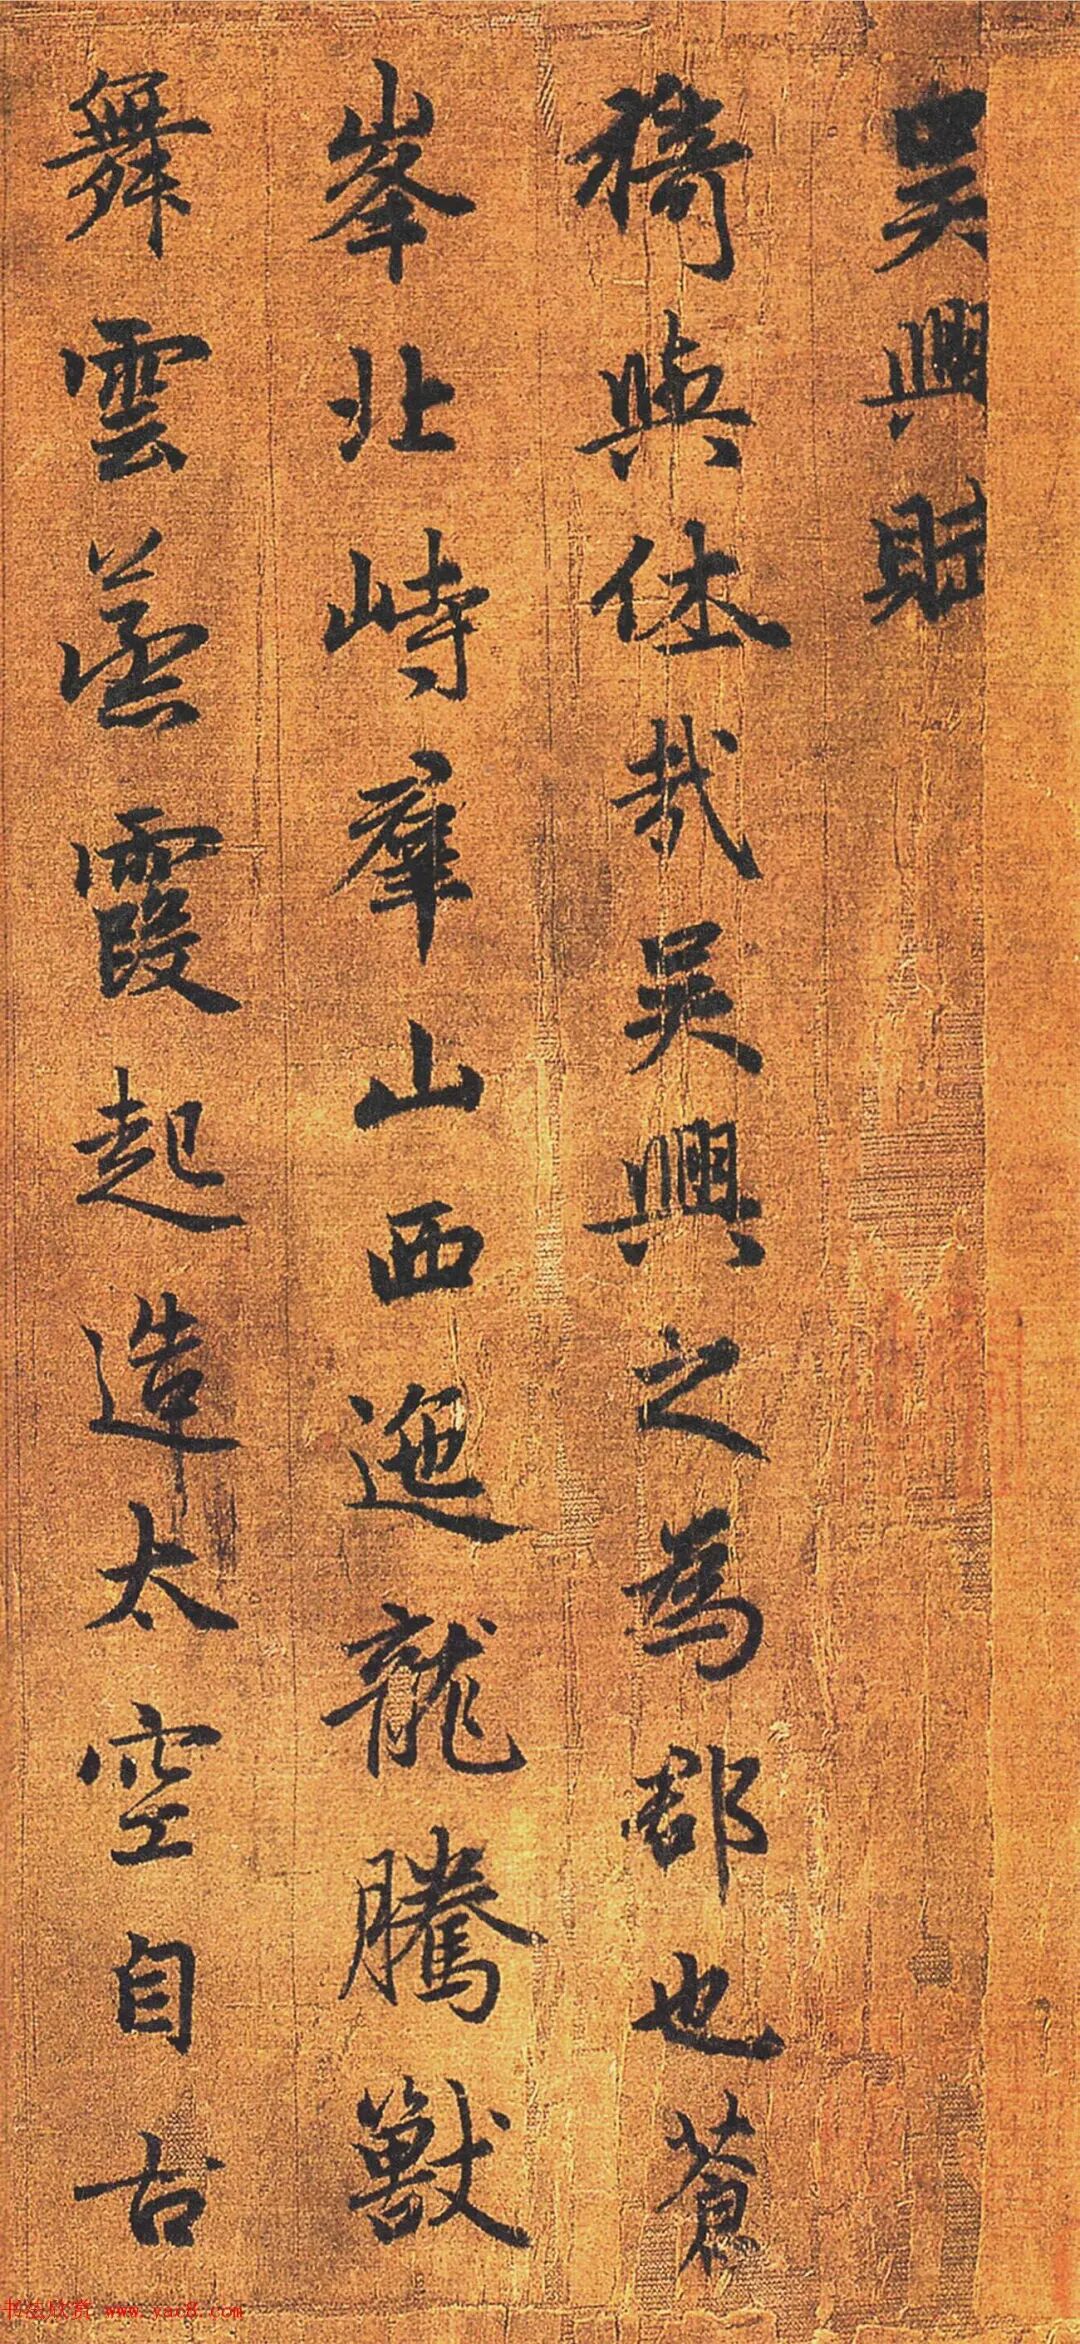 吳興賦
猗與休哉吳興之為郡也蒼
峯北峙羣山西迤龍騰獸
舞雲蒸霞起造太空自古
书法欣赏 www.yac8.com